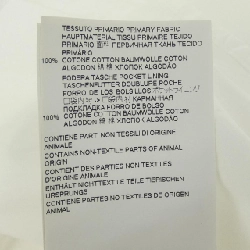 TESSUTO PRIMARIO PRIMARY FABRIC
HAUPTMATERIAL TISSU PRIMAIRE TEJIDO
PRIMARIO 面料 ПЕРВИЧНАЯ ТКАНЬ TECIDO
PRIMÁRIO
100% COTONE COTTON BAUMWOLLE COTON
ALGODON 棉 綿 ХЛОПОК ALGODÃO
FODERA TASCHE POCKET LINING
TASCHENFUTTER DOUBLURE POCHE
FORRO DE LOS BOLSILLOS
КАРМАННАЯ
ПОДКЛАДКА FORRO DE BOLSO
100% COTONE COTTON BAUMWOLLE COTON
ALGODON 棉 綿 ХЛОПОК ALGODÃO
CONTIENE PARTI NON TESSILI DI ORIGINE
ANIMALE
CONTAINS NON-TEXTILE PARTS OF ANIMAL
ORIGIN
CONTIENT DES PARTIES NON TEXTILES
D'ORIGINE ANIMALE
ENTHÄLT NICHTTEXTILE TEILE TIERISCHEN
URSPRUNGS
CONTIENE PARTES NO TEXTILES DE ORIGEN
ANIMAL